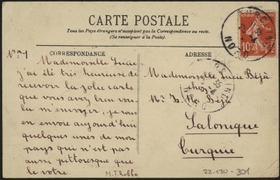 CARTE POSTALE
Tous les pays étrangers n'acceptent pas la Correspondance au recto.
(Se renseigner à la Poste)
CORRESPONDANCE
ADRESSE
Mademoiselle Lucie
j'ai été très heureuse de
recevoir la jolie carte
que vous avez bien vou
lu m'envoyer, je vous
en envoie aujourd'hui
quelques unes de mon
pays qui n'est pas
aussi pittoresque que
le votre
Mademoiselle Lucie Béjà
Salonique
Turquie